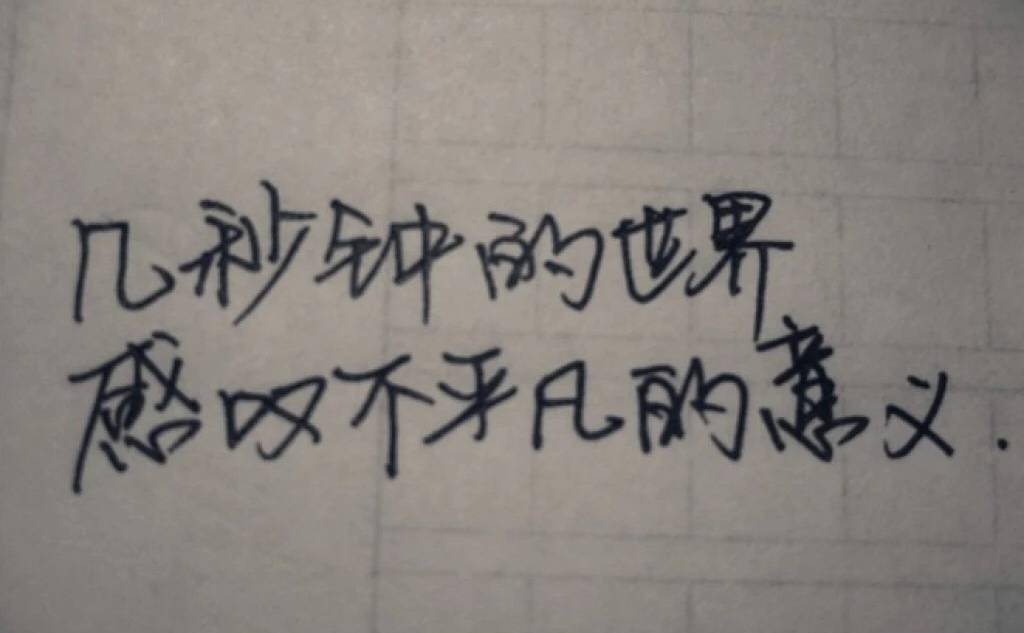 几秒钟的世界
感叹不平凡的意义.